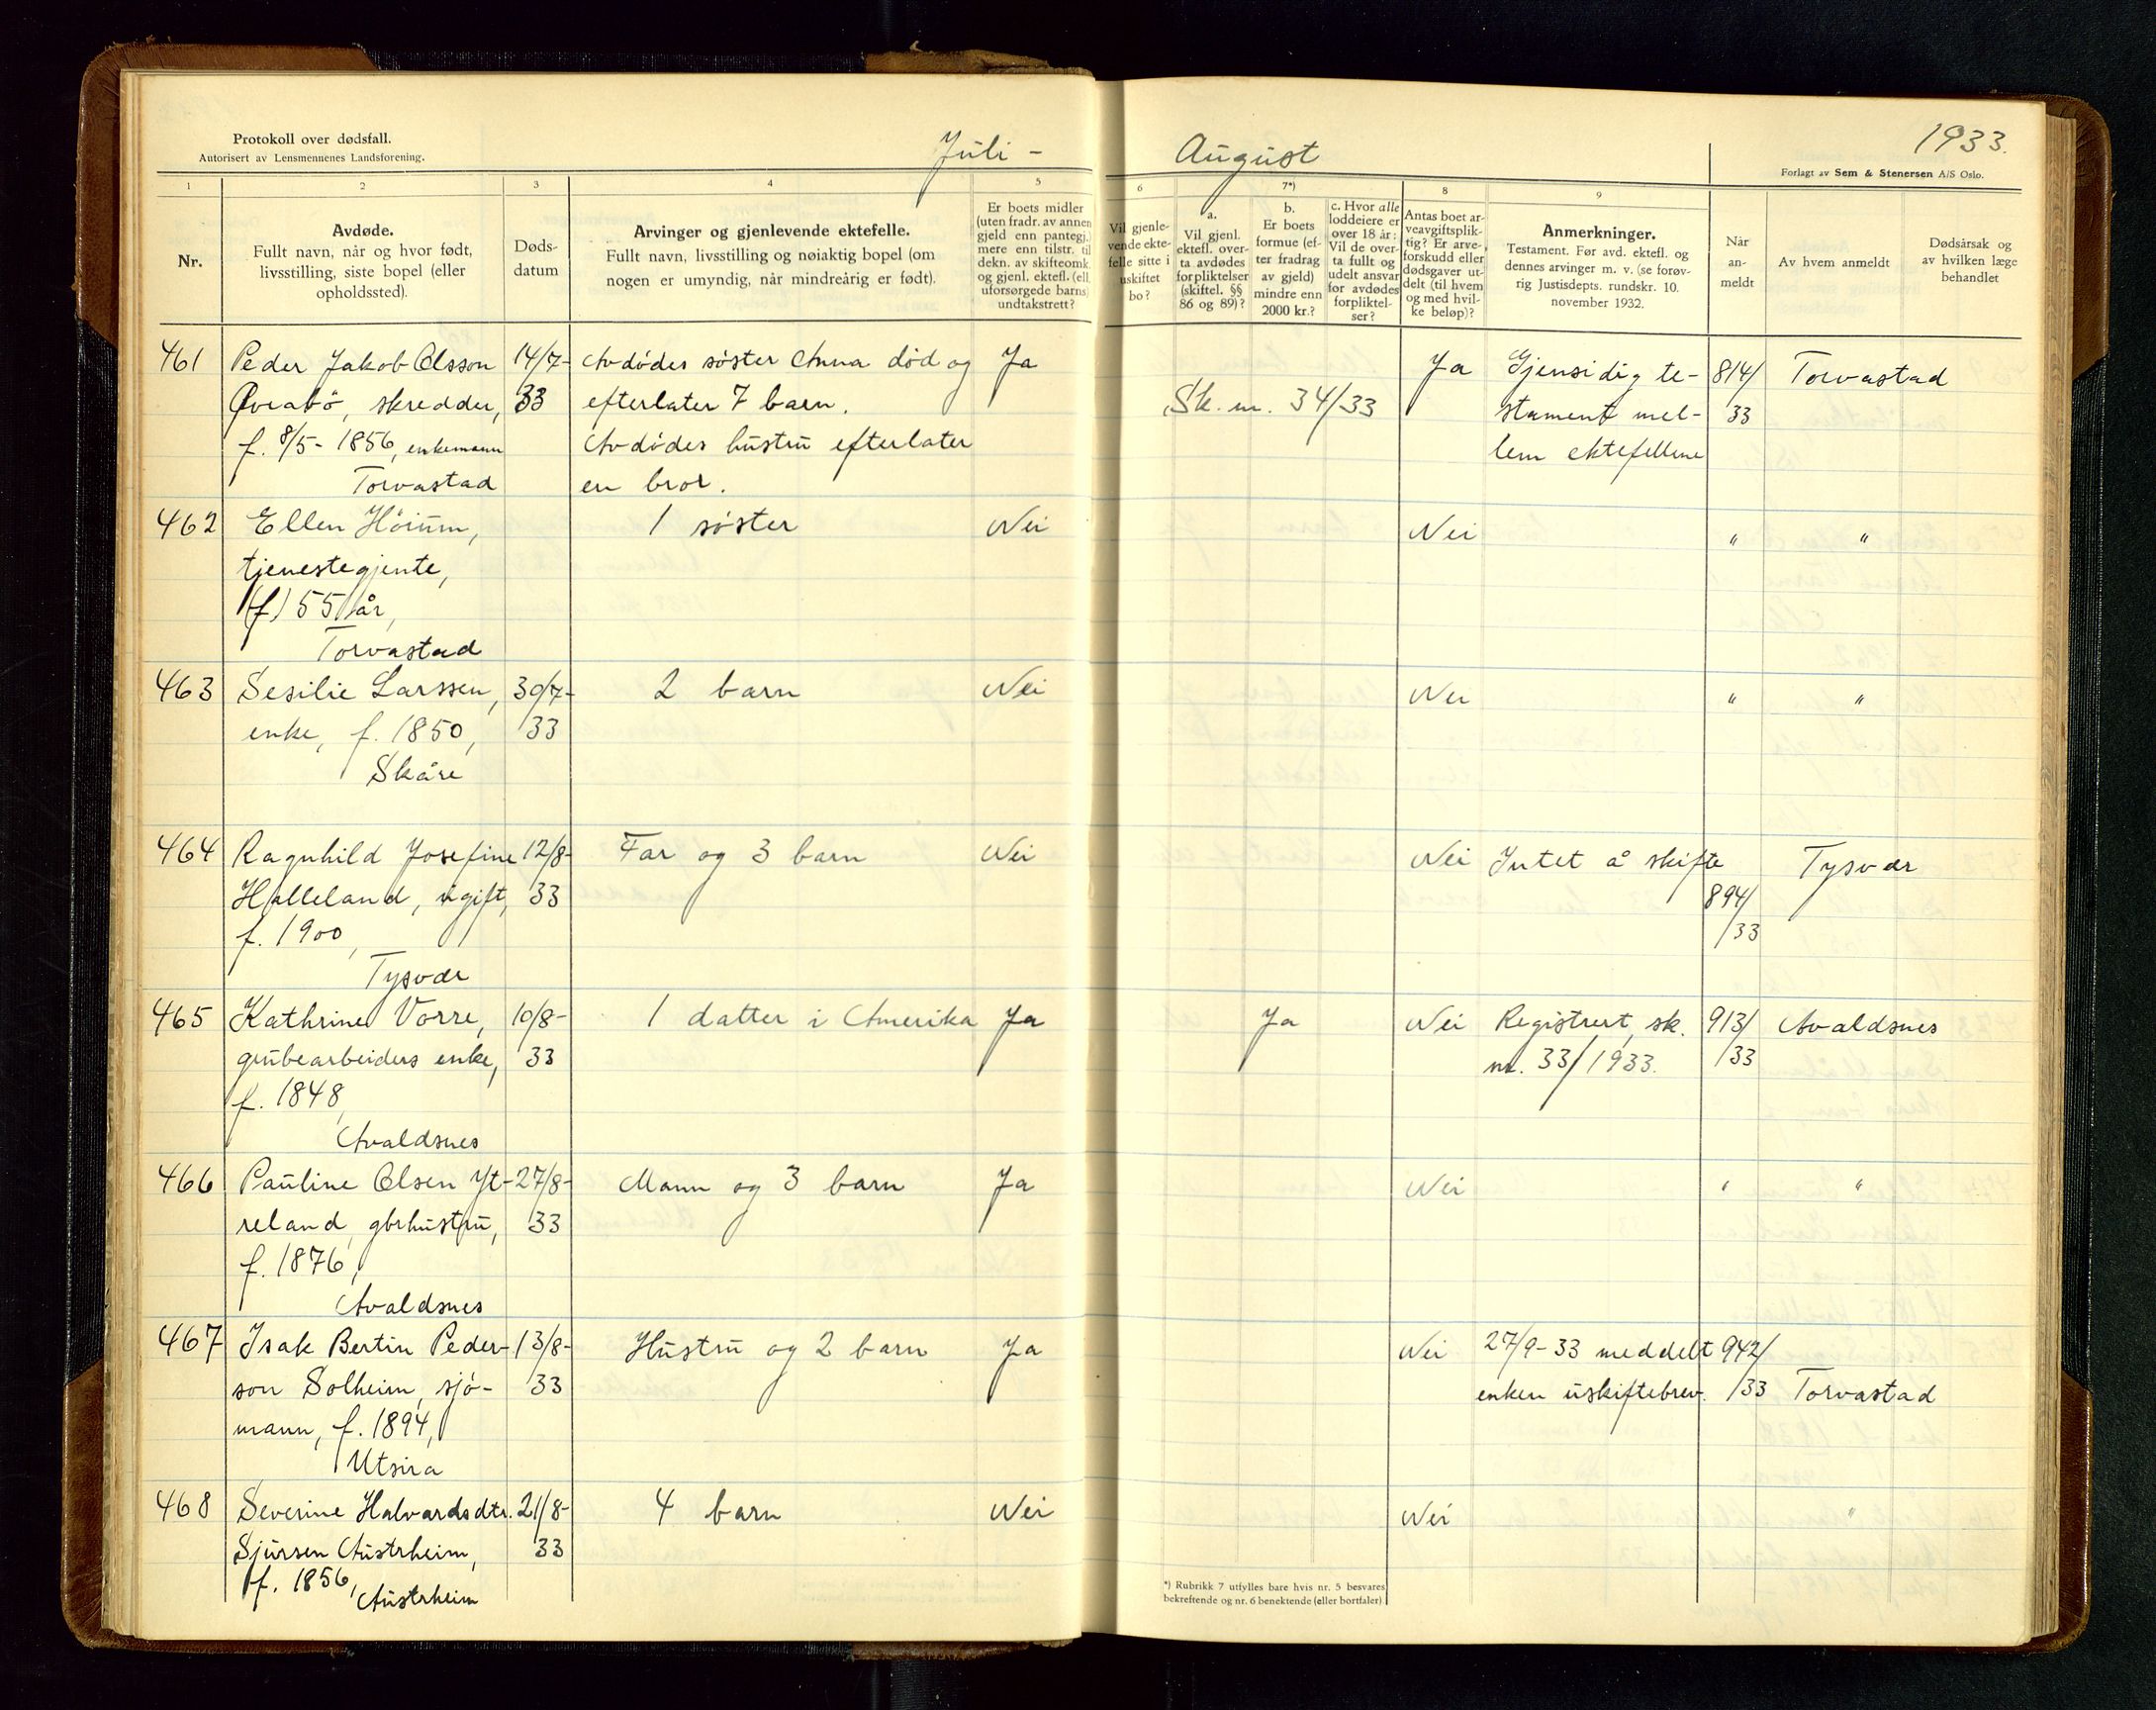 Protokoll over dødsfall.
Autorisert av Lensmennenes Landsforening.
Juli –
August
1933.
Forlagt av Sem & Stenersen A/S Oslo.
1
2
3
4
5
6
7*)
8
9
Nr.
Avdøde.
Fullt navn, når og hvor født,
livsstilling, siste bopel (eller
opholdssted).
Døds-
datum
Arvinger og gjenlevende ektefelle.
Fullt navn, livsstilling og nøiaktig bopel (om
nogen er umyndig, når mindreårig er født).
Er boets midler
(uten fradr. av annen
gjeld enn pantegj.)
mere enn tilstr. til
dekn. av skifteomk.
og gjenl. ektefl. (ell.
uforsørgede barns)
undtakstrett?
Vil gjenle-
vende ekte-
felle sitte i
uskiftet
bo?
a.
Vil gjenl.
ektefl. over-
ta avdødes
forpliktelser
(skiftel. §§
86 og 89)?
b.
Er boets
formue (ef-
ter fradrag
av gjeld)
mindre enn
2000 kr.?
c. Hvor alle
loddeiere er
over 18 år:
Vil de over-
ta fullt og
udelt ansvar
for avdødes
forpliktel-
ser?
Antas boet ar-
veavgiftsplik-
tig? Er arve-
forskudd eller
dødsgaver ut-
delt (til hvem
og med hvil-
ke beløp)?
Anmerkninger.
Testament. Før avd. ektefl. og
dennes arvinger m. v. (se forøv-
rig Justisdepts. rundskr. 10.
november 1932.
Når
an-
meldt
Av hvem anmeldt
Dødsårsak og
av hvilken læge
behandlet
461 Peder Jakob Olsson 14/7- Avdødes søster Anna død og Ja Ja Gjensidig te- 814/ Torvastad
Øvrabö, skredder, 33 efterlater 7 barn. Sk. nr. 34/33 stament mel- 33
f. 8/5- 1856, enkemann Avdødes hustru efterlater lem ektefellene
Torvastad en bror.
462 Ellen Höium, 1 søster Nei Nei " "
tjenestegjente,
(f) 55 år,
Torvastad
463 Sesilie Larssen, 30/7- 2 barn Nei Nei " "
enke, f. 1850, 33
Skåre
464 Ragnhild Josefine 12/8- Far og 3 barn Nei Nei Intet å skifte Tysvær
Halleland, ugift, 33 894/
f. 1900, /33
Tysvær
465 Kathrine Vorre, 10/8- 1 datter i Amerika Ja Ja Nei Registrert, sk. 913/ Avaldsnes
grubearbeiders enke, 33 nr. 33/1933. /33
f. 1848,
Avaldsnes
466 Pauline Olsen Yt- 27/8- Mann og 3 barn Ja Nei " "
reland, gbrhustru, 33
f. 1876,
Avaldsnes
467 Isak Bertin Peder- 13/8- Hustru og 2 barn Ja Nei 27/9-33 meddelt 942/
son Solheim, sjö- 33 enken uskiftebrev. /33 Torvastad
mann, f. 1894,
Utsira
468 Severine Halvardsdtr. 21/8- 4 barn Nei Nei "
Sjursen Austrheim, 33
f. 1856,
Austrheim
*) Rubrikk 7 utfylles bare hvis nr. 5 besvares
bekreftende og nr. 6 benektende (eller bortfaler).